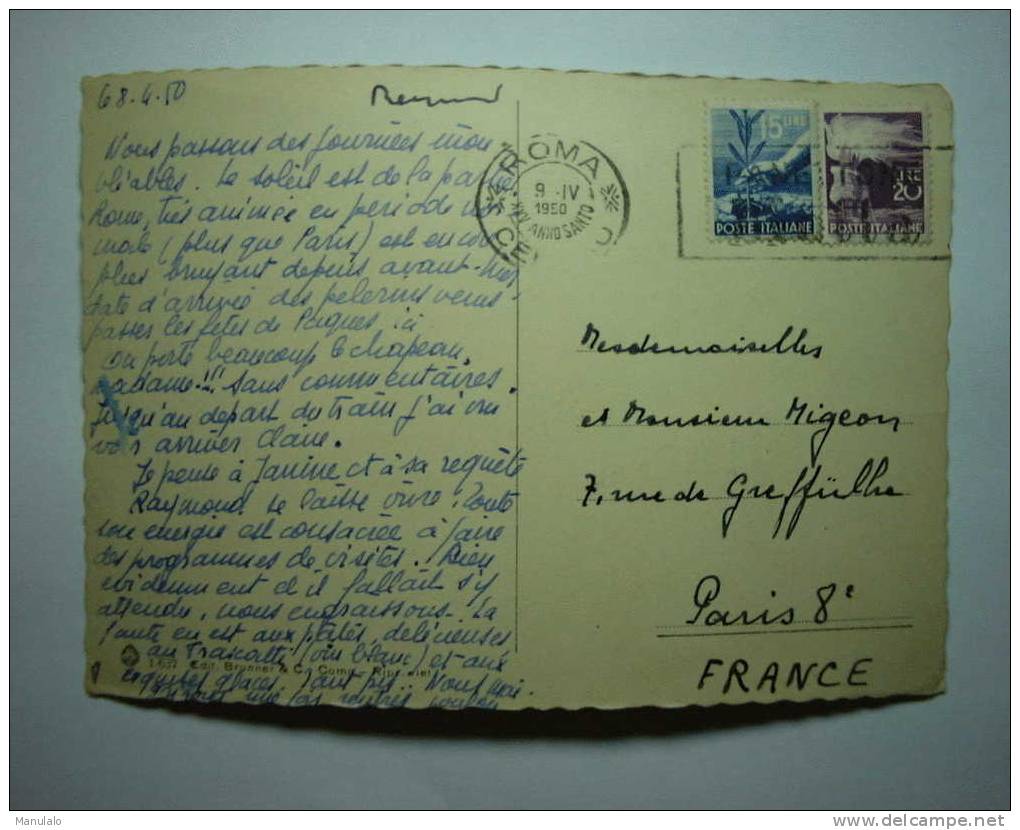 8.4.50
Raymond
Nous passons des journées inou
bliables. Le soleil est de la partie
Rome, très animée en période nor
male (plus que Paris) est encore
plus bruyant depuis avant-hier
date d'arrivée des pelerins venus
passer les fetes de Paques ici
On porte beaucoup le chapeau,
madame!!! Sans commentaires.
Jusqu'au départ du train j'ai cru
voir arriver Claire.
Je pense à Janine et à sa requête
Raymond se laisse vivre. Toute
son energie est consacrée à faire
des programmes de visites. Bien
evidemment et il fallait s'y
attendre, nous engraissons. La
faute en est aux pâtes, délicieuses
au Frascatti (vin blanc) et aux
exquises glaces. Tant pis. Nous
une fois rentrés
Edit. Brunner & C. Como
ROMA
9-IV
1950
XXV ANNO SANTO
15 LIRE
POSTE ITALIANE
LIRE
20
POSTE ITALIANE
Mesdemoiselles
et Monsieur Migeon
7, rue de Greffülhe
Paris 8e
FRANCE
Manulalo
delcampe.net